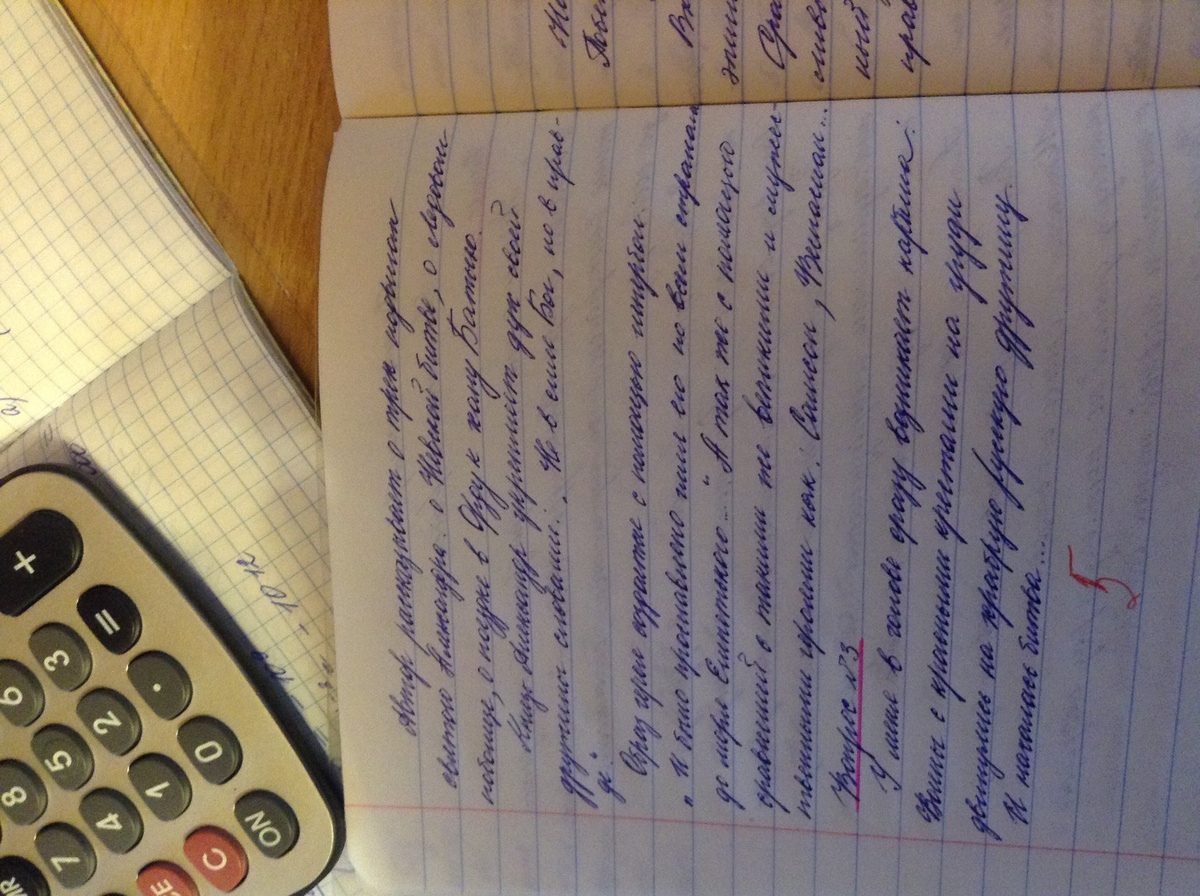 Автор рассказывает о трех подвигах
святого Александра: о Невской битве, о ледовом
побоище, о поездке в Орду к хану Батыю.
Князь Александр укрепляет дух своей
дружины словами: „Не в силе Бог, но в прав-
де."
Образ героя выражен с помощью
„И было прославлено имя его по всем странам
до моря Египетского..." А так же с помощью
сравнений с такими же великими и мужес-
твенными героями как: Самсон, Веспасиан...
Вопрос №3
У меня в голове сразу возникает картина:
Воины с красными крестами на груди
двинулись на храбрую русскую дружину.
И началась битва...
5
+
=
3
6
.
2
5
8
0
1
4
7
ON
C
CE
MR
- 10